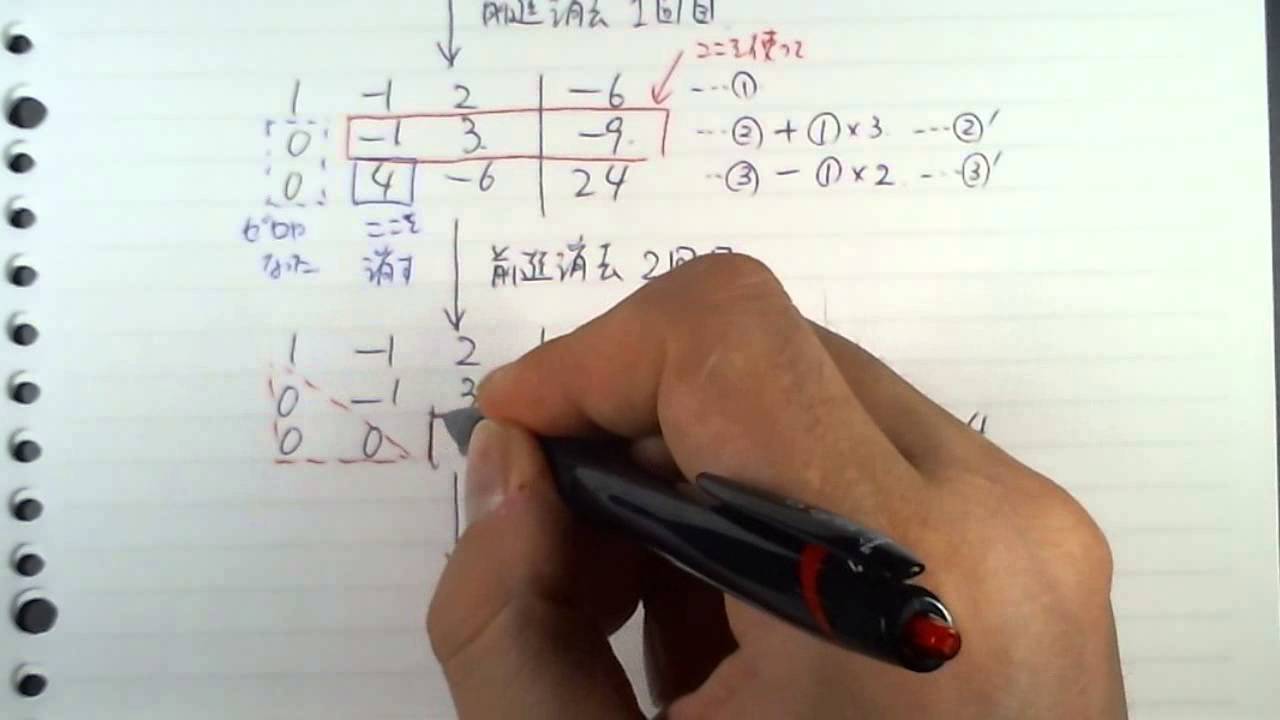 前進消去 1回目
ここを使って
1 -1 2 | -6 …①
0 -1 3 | -9 …②+①×3 …②'
0 4 -6 | 24 …③-①×2 …③'
0に ここを
なった 消す
前進消去 2回目
1 -1 2
0 -1 3
0 0